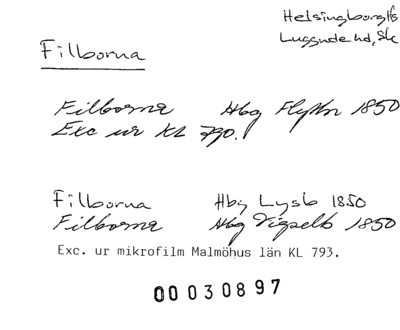 Helsingborg lfs
Luggude hd, Sk
Filborna
Filborna Hbg 1850
Exc ur KL 790.
Filborna Hbg 1850
Filborna Hbg 1850
Exc. ur mikrofilm Malmöhus län KL 793.
00 030897